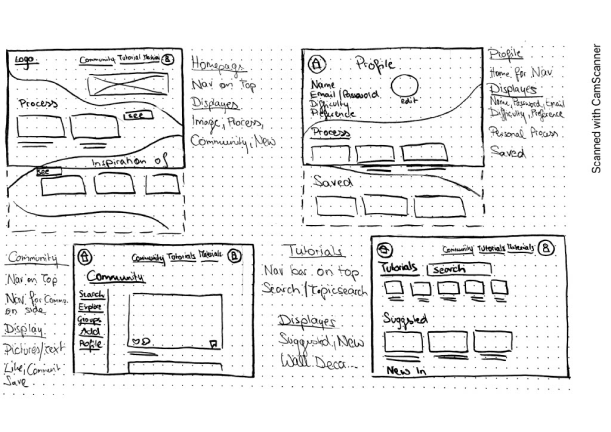 Logo
Community Tutorial Materials B
Process
see
Inspiration of
see
Homepage
Nav on Top
Displayes
Image, Process,
Community, New
A
Profile
Name
Email / Password
Difficulty
Preference
edit
Process
Saved
Profile
Home for Nav.
Displayes
Name, Password, Email
Difficulty, Preference
Personal Process
Saved
Community
Nav on Top
Nav. for Comm.
on side
Display
Pictures/text
Like, Comment
Save
Community Tutorials Materials B
Community
Search
Explore
Groups
Add
Profile
Tutorials
Nav bar on top.
Search / Topicsearch
Displayes
Suggested, New
Wall Deca...
Community Tutorials Materials B
Tutorials search
Suggested
New In
Scanned with CamScanner